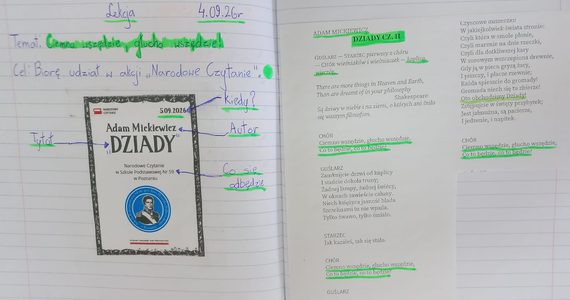 Lekcja 4.09.26r
Temat: Ciemno wszędzie, głucho wszędzie!
Cel: Biorę udział w akcji „Narodowe Czytanie".
5.09.2026
Kiedy?
Adam Mickiewicz
Autor
Tytuł
„DZIADY"
Narodowe Czytanie
w Szkole Podstawowej Nr 59
w Poznaniu
Co się
odbędzie
ADAM MICKIEWICZ
DZIADY CZ. II
GUŚLARZ — STARZEC pierwszy z chóru
— CHÓR wieśniaków i wieśniaczek —
There are more things in Heaven and Earth,
Than are dreamt of in your philosophy
Shakespeare
Są dziwy w niebie i na ziemi, o których ani śniło
się waszym filozofom.
CHÓR
Ciemno wszędzie, głucho wszędzie,
Co to będzie, co to będzie?
GUŚLARZ
Zamknijcie drzwi od kaplicy
I stańcie dokoła truny;
Żadnej lampy, żadnej świécy,
W oknach zawieście całuny.
Niech księżyca jasność blada
Szczelinami tu nie wpada.
Tylko żwawo, tylko śmiało.
STARZEC
Jak kazałeś, tak się stało.
CHÓR
Ciemno wszędzie, głucho wszędzie,
Co to będzie, co to będzie?
GUŚLARZ
Czyscowe duszeczki!
W jakiejkolwiek świata stronie:
Czyli która w smole płonie,
Czyli marznie na dnie rzeczki,
Czyli dla dotkliwszej kary
W surowym wszczepiona drewnie,
Gdy ją w piecu gryzą żary,
I piszczy, i płacze rzewnie;
Każda spieszcie do gromady!
Gromada niech się tu zbierze!
Oto obchodzimy Dziady!
Zstępujcie w święty przybytek;
Jest jałmużna, są pacierze,
I jedzenie, i napitek.
CHÓR
Ciemno wszędzie, głucho wszędzie,
Co to będzie, co to będzie?